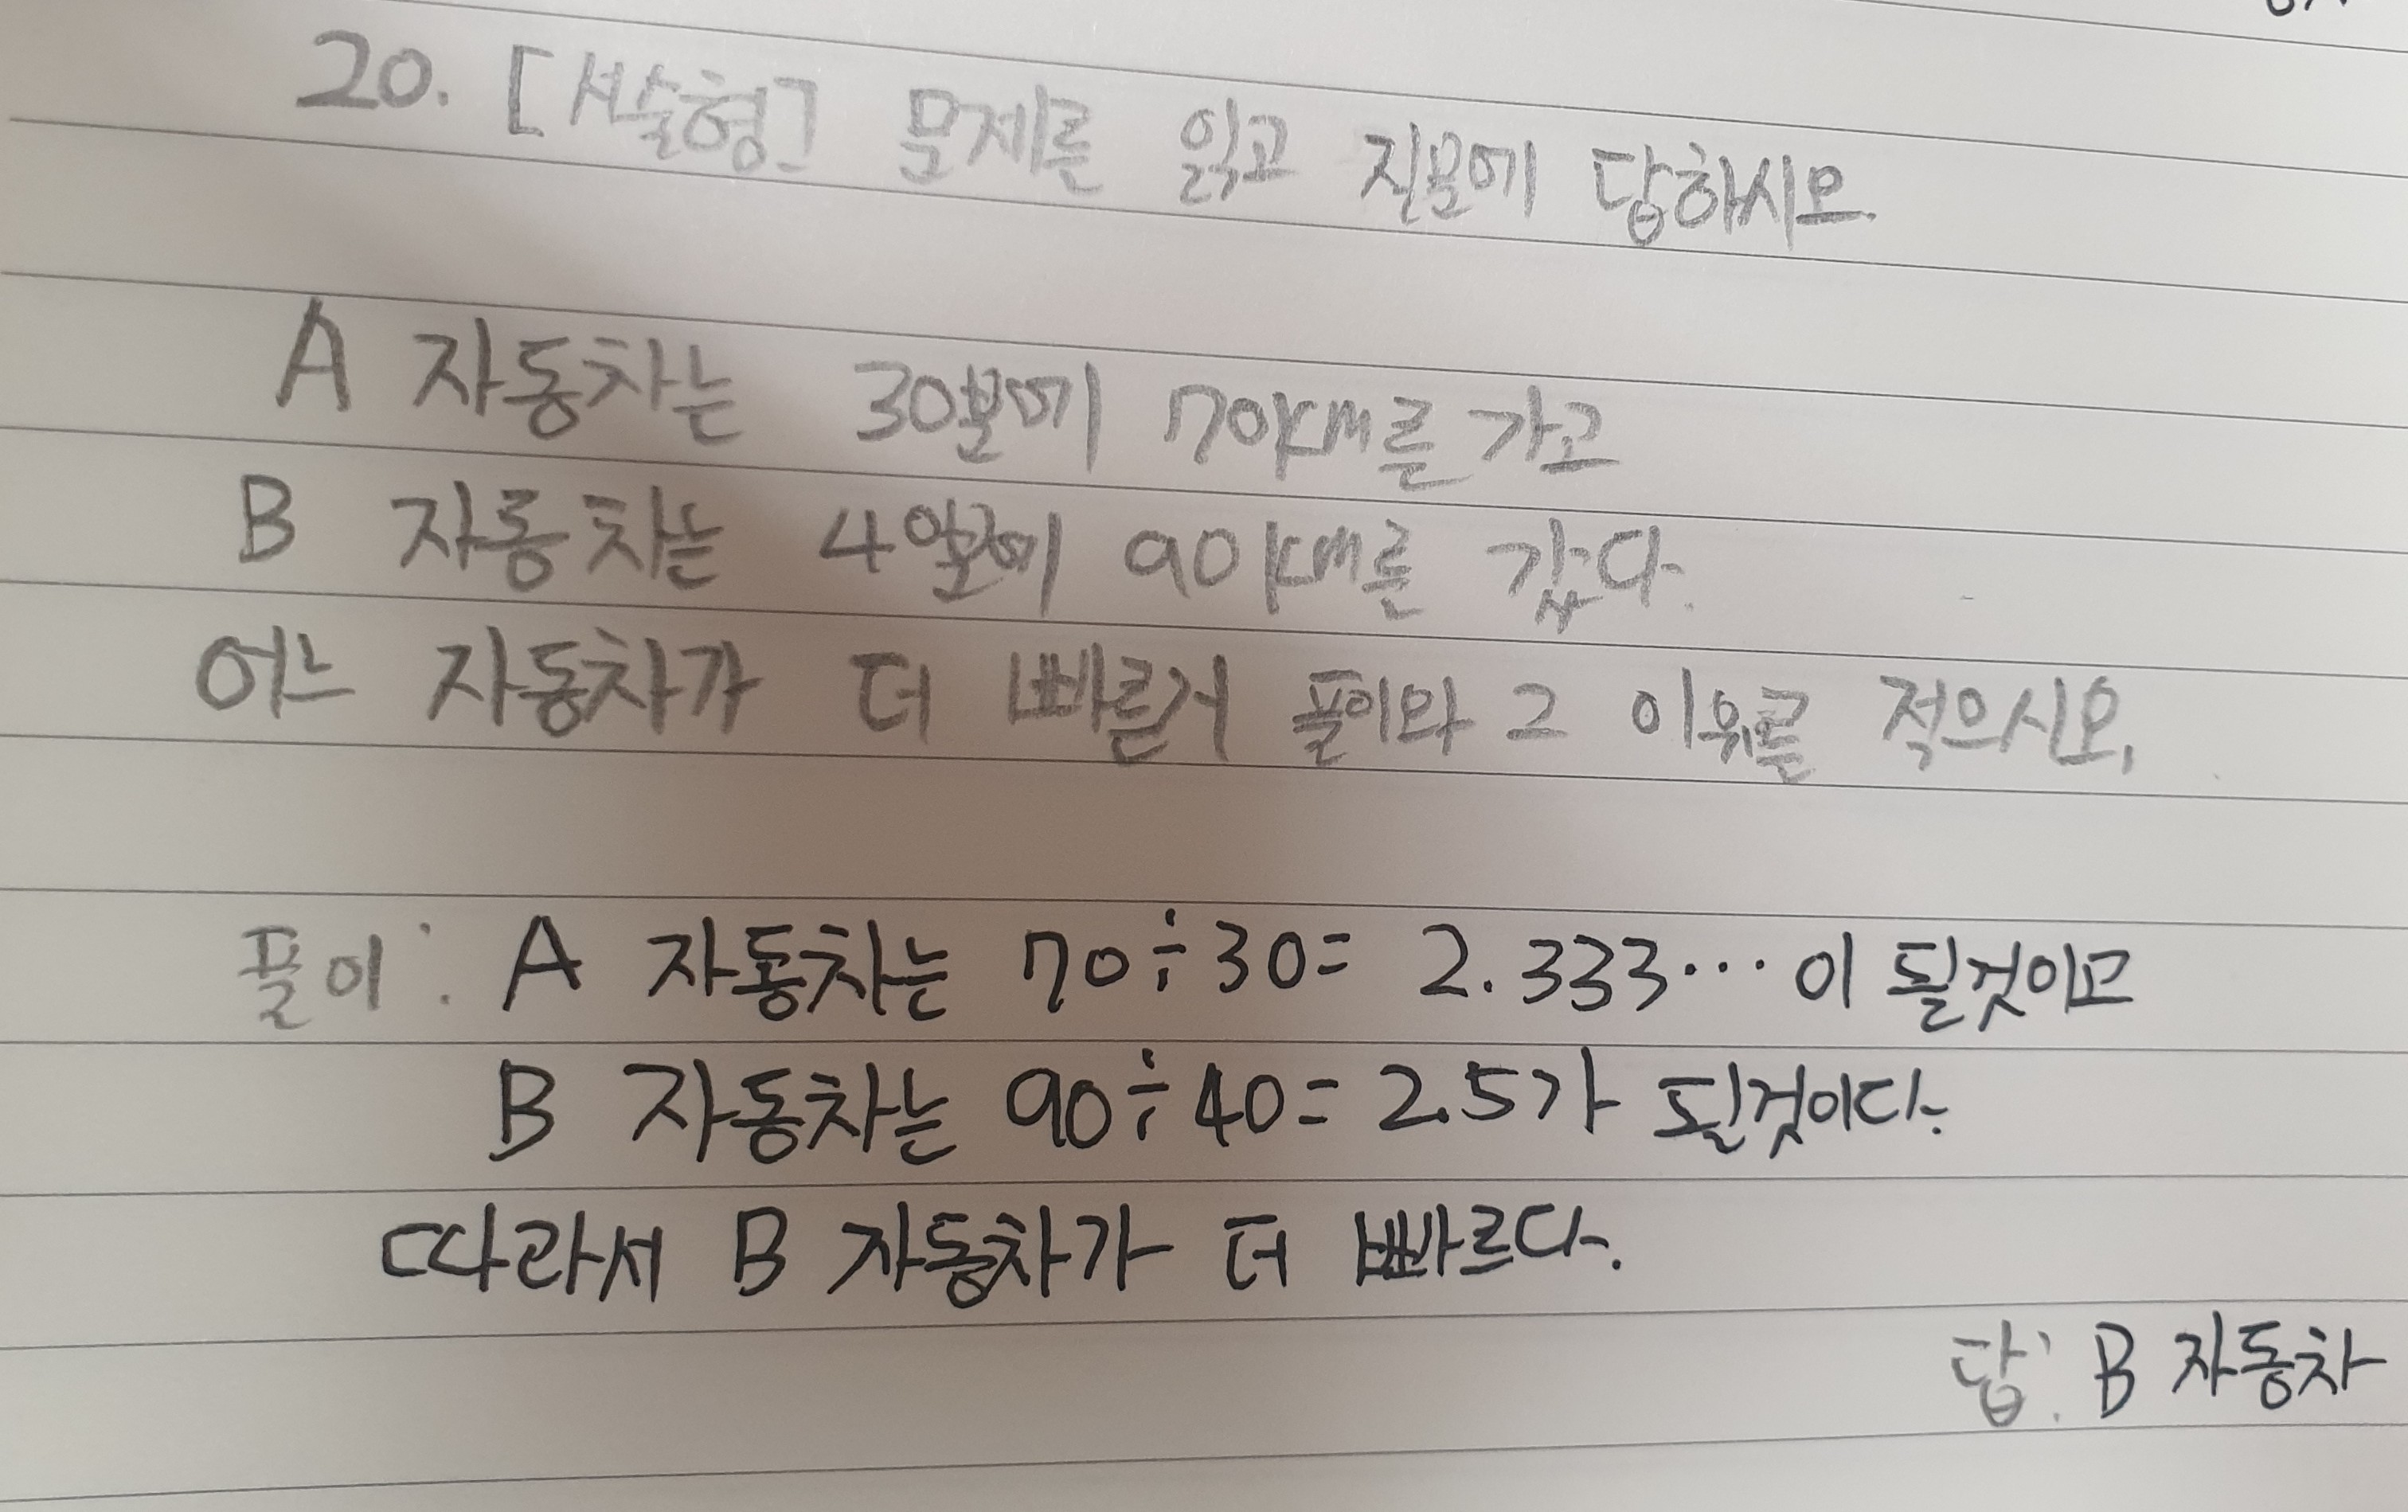 20. [서술형] 문제를 읽고 질문에 답하시오.
A 자동차는 30분에 70km를 가고
B 자동차는 에 90km를 갔다.
어느 자동차가 더 빠른거 풀이와 그 이유를 적으시오.
풀이: A 자동차는 70÷30= 2.333… 이 될것이고
B 자동차는 90÷40= 2.5가 될것이다.
따라서 B 자동차가 더 빠르다.
답: B 자동차